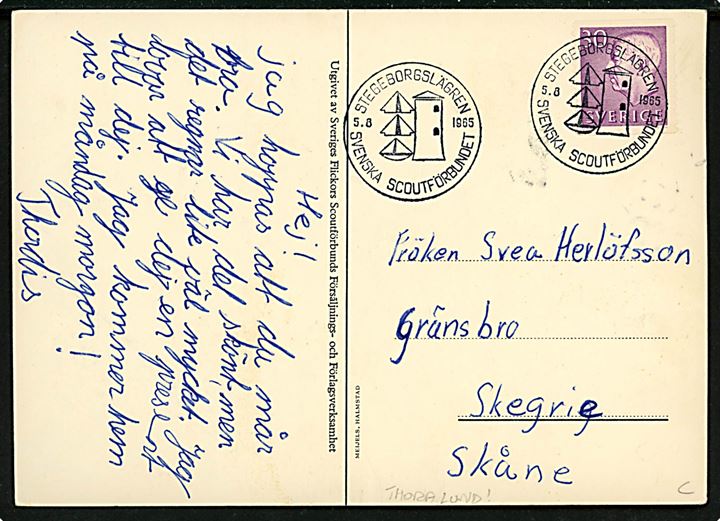 Hej!
jag hoppas att du mår
bra. Vi har det skönt, men
det regnar lite väl mycket. Jag
lovar att ge dej en present
till dej. Jag kommer hem
på måndag morgon!
Thordis
Utgivet av Sveriges Flickors Scoutförbunds Försäljnings- och Förlagsverksamhet
MEIJELS, HALMSTAD
STEGEBORGSLÄGREN
5.8 1965
SVENSKA SCOUTFÖRBUNDET
30
SVERIGE
STEGEBORGSLÄGREN
5.8 1965
SVENSKA SCOUTFÖRBUNDET
Fröken Svea Herlöfsson
Gränsbro
Skegrie
Skåne
THORA LUND!
C